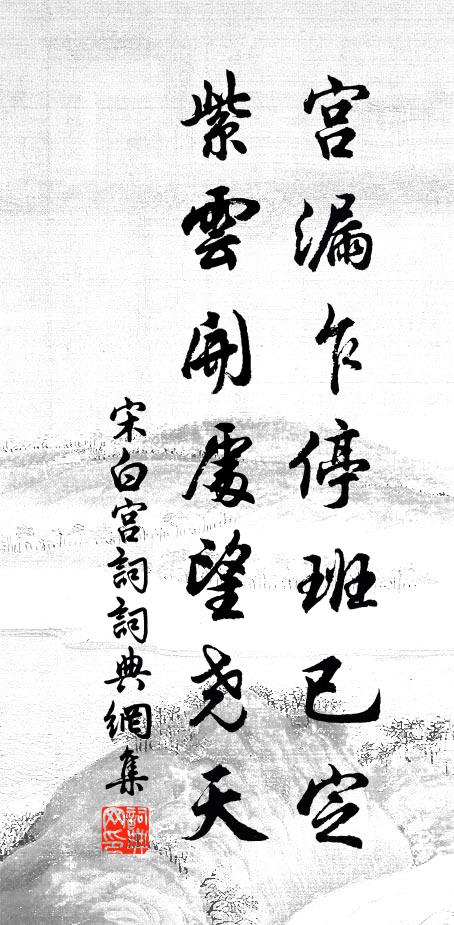 宮漏乍停班已定
紫雲開處望堯天
宋白宮詞詞典網集
詞典網印